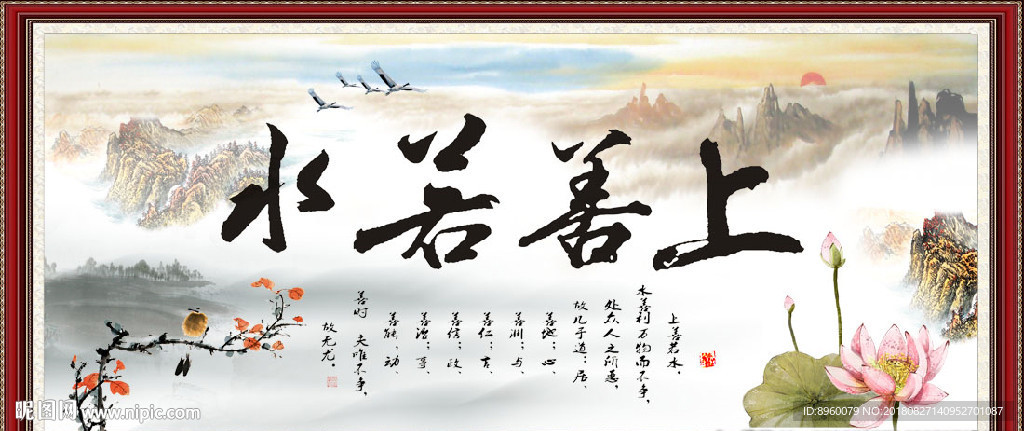 上善若水
上善若水，
水善利万物而不争，
处众人之所恶，
故几于道；居、
善地；心、
善渊；与、
善仁；言、
善信；政、
善治；事、
善能；动、
善时 夫唯不争，
故无尤。
昵图网 www.nipic.com
ID:8960079 NO:20180827140952701087